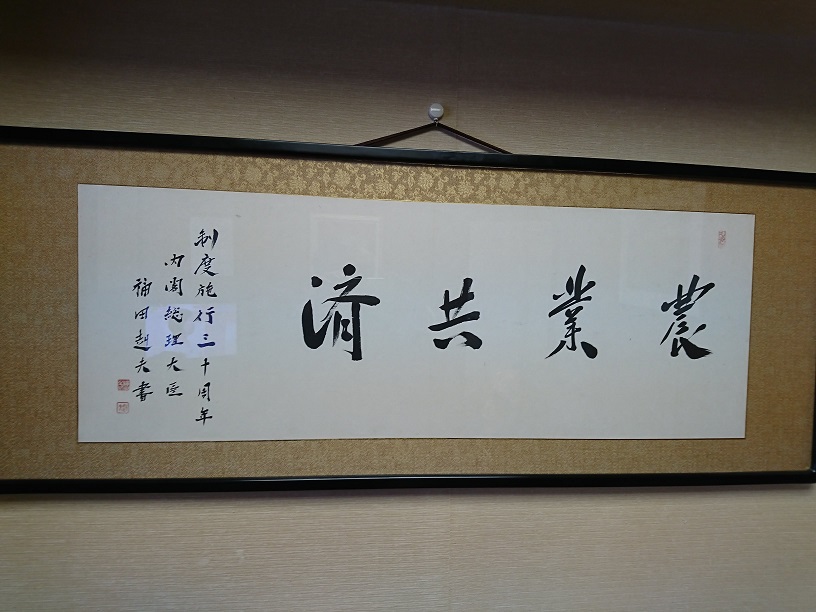 農業共済
制度施行三十周年
内閣総理大臣
福田赳夫書